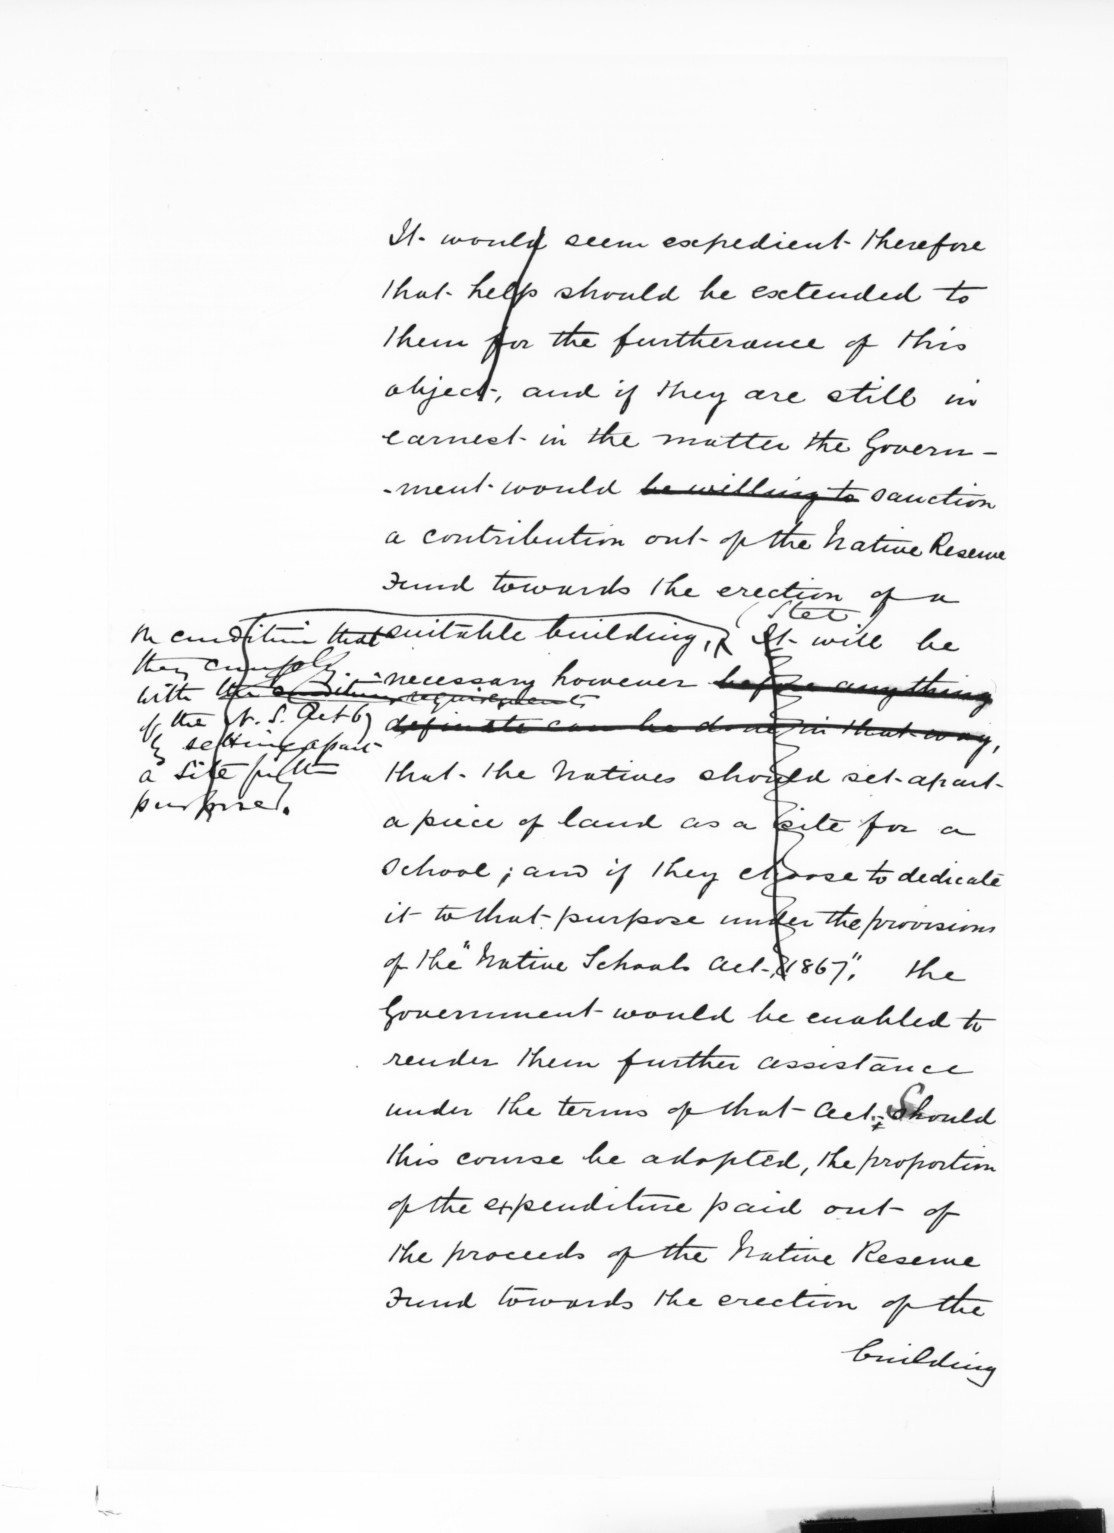 It would seem expedient therefore
that help should be extended to
them for the furtherance of this
object, and if they are still in
earnest in the matter the Govern-
-ment would be willing to sanction
a contribution out of the Native Reserve
Fund towards the erection of a
Stet
suitable building, It will be
necessary however before anything
definate can be done in that way,
that the Natives should set apart
a piece of land as a site for a
School; and if they choose to dedicate
it to that purpose under the provisions
of the "Native Schools Act, 1867", the
Government would be enabled to
render them further assistance
under the terms of that Act; Should
this course be adopted, the proportion
of the expenditure paid out of
the proceeds of the Native Reserve
Fund towards the erection of the
building
on condition that
they comply
with the conditions requirements
of the N. S. Act 67
by setting apart
a site for the
purpose.